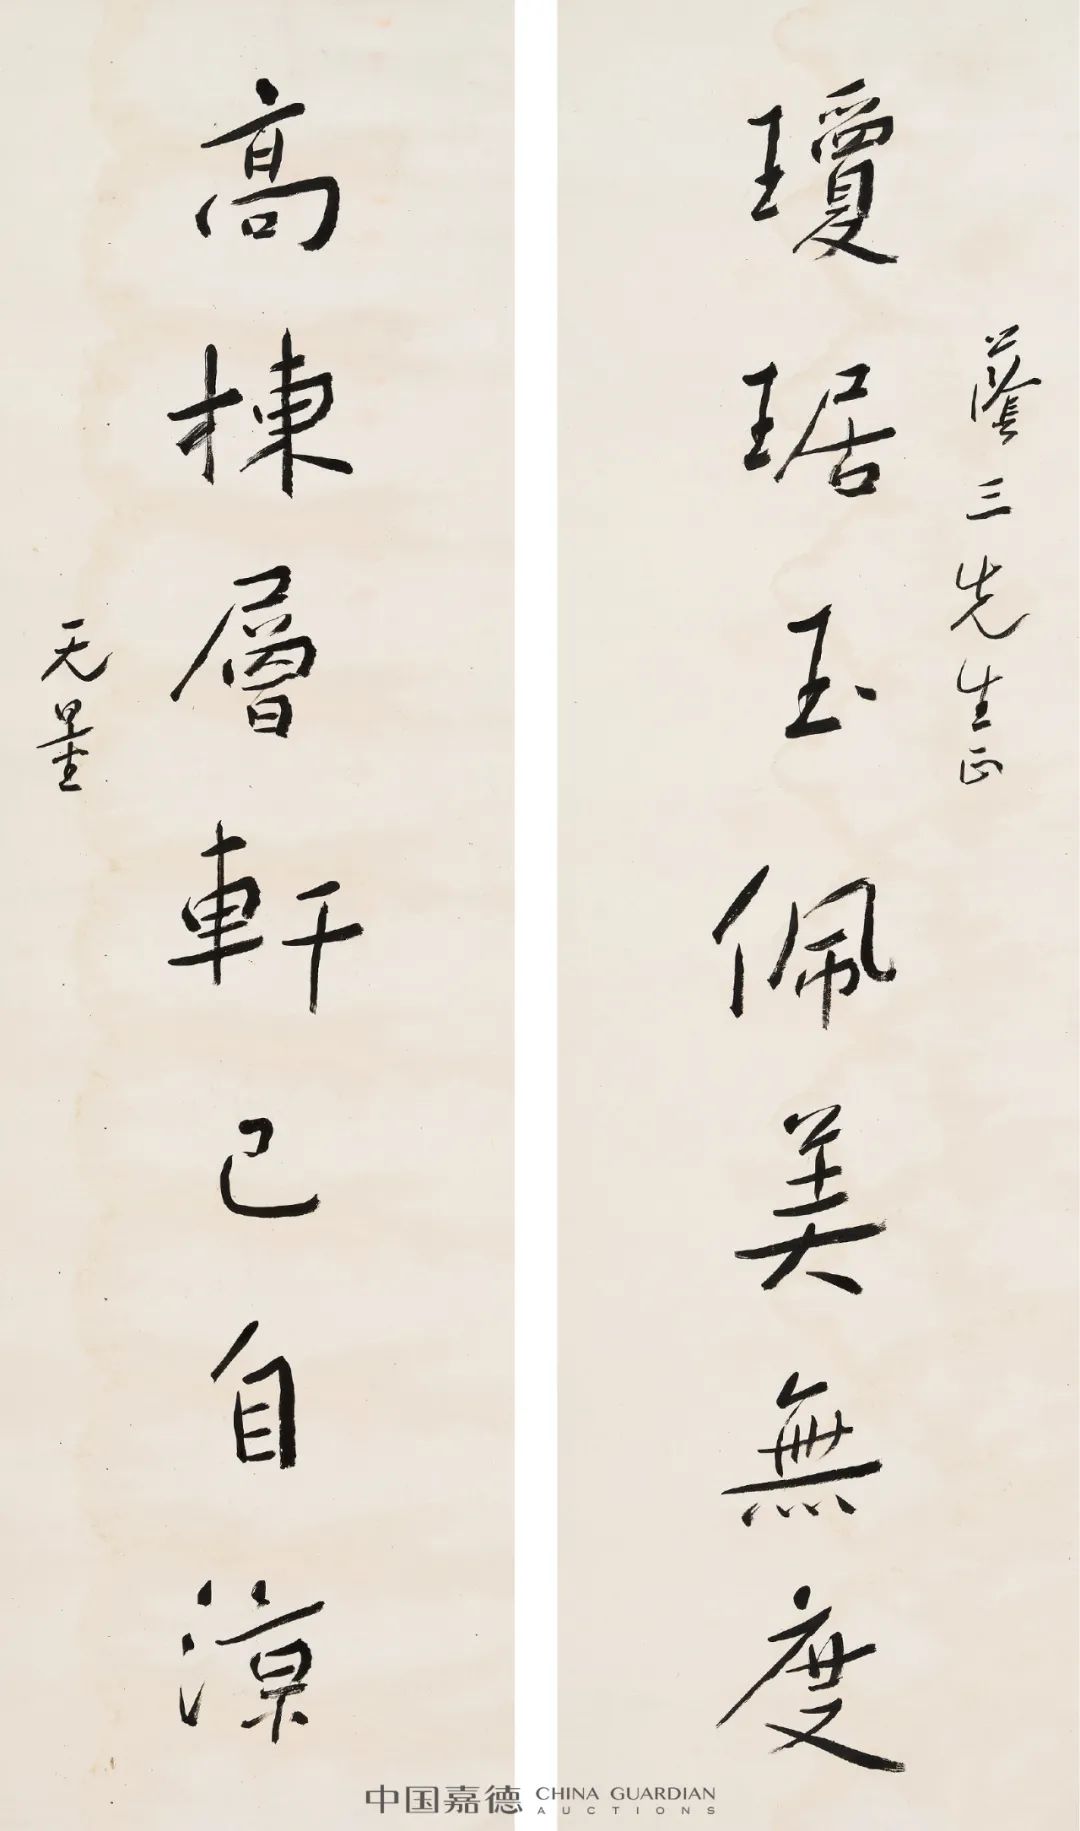 蔭三先生正
瓊琚玉佩美無度
高棟層軒已自涼
无量
中国嘉德 CHINA GUARDIAN
AUCTIONS